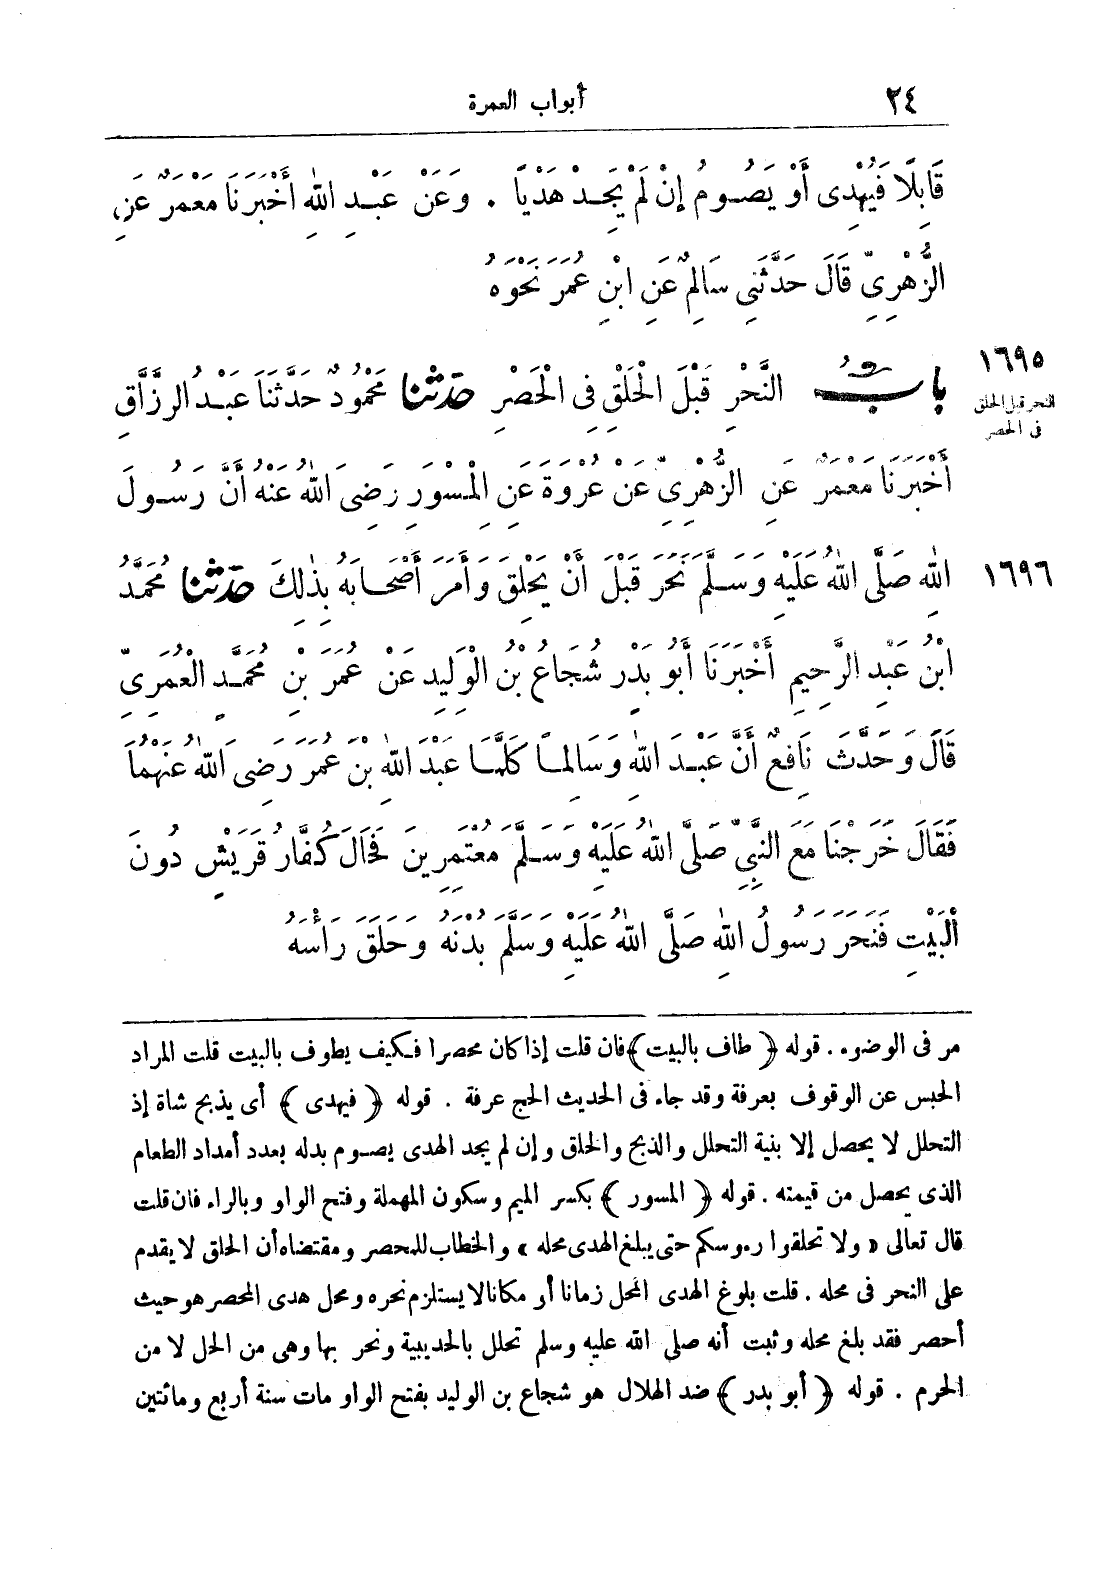 ٢٤
أبواب العمرة
قَابِلًا فَيُهْدِى أَوْ يَصُومُ إِنْ لَمْ يَجِدْ هَدْيًا . وَعَنْ عَبْدِ اللهِ أَخْبَرَنَا مَعْمَرٌ عَنِ
الزُّهْرِىِّ قَالَ حَدَّثَنِى سَالِمٌ عَنِ ابْنِ عُمَرَ نَحْوَهُ
١٦٩٥
النحر قبل الحلق
فى الحصر
بابُ النَّحْرِ قَبْلَ الْحَلْقِ فِى الْحَصْرِ حدثنا مَحْمُودٌ حَدَّثَنَا عَبْدُ الرَّزَّاقِ
أَخْبَرَنَا مَعْمَرٌ عَنِ الزُّهْرِىِّ عَنْ عُرْوَةَ عَنِ الْمِسْوَرِ رَضِىَ اللهُ عَنْهُ أَنَّ رَسُولَ
اللهِ صَلَّى اللهُ عَلَيْهِ وَسَلَّمَ نَحَرَ قَبْلَ أَنْ يَحْلِقَ وَأَمَرَ أَصْحَابَهُ بِذٰلِكَ حدثنا مُحَمَّدُ
١٦٩٦
ابْنُ عَبْدِ الرَّحِيمِ أَخْبَرَنَا أَبُو بَدْرٍ شُجَاعُ بْنُ الْوَلِيدِ عَنْ عُمَرَ بْنِ مُحَمَّدٍ الْعُمَرِىِّ
قَالَ وَحَدَّثَ نَافِعٌ أَنَّ عَبْدَ اللهِ وَسَالِمًا كَلَّمَا عَبْدَ اللهِ بْنَ عُمَرَ رَضِىَ اللهُ عَنْهُمَا
فَقَالَ خَرَجْنَا مَعَ النَّبِىِّ صَلَّى اللهُ عَلَيْهِ وَسَلَّمَ مُعْتَمِرِينَ فَحَالَ كُفَّارُ قُرَيْشٍ دُونَ
الْبَيْتِ فَنَحَرَ رَسُولُ اللهِ صَلَّى اللهُ عَلَيْهِ وَسَلَّمَ بُدْنَهُ وَحَلَقَ رَأْسَهُ
مر فى الوضوء . قوله ﴿ طاف بالبيت ﴾ فان قلت إذا كان محصرا فكيف يطوف بالبيت قلت المراد
الحبس عن الوقوف بعرفة وقد جاء فى الحديث الحج عرفة . قوله ﴿ فيهدى ﴾ أى يذبح شاة إذ
التحلل لا يحصل إلا بنية التحلل والذبح والحلق وإن لم يجد الهدى يصوم بدله بعدد أمداد الطعام
الذى يحصل من قيمته . قوله ﴿ المسور ﴾ بكسر الميم وسكون المهملة وفتح الواو وبالراء فان قلت
قال تعالى « ولا تحلقوا رءوسكم حتى يبلغ الهدى محله » والخطاب للمحصر ومقتضاه أن الحلق لا يقدم
على النحر فى محله . قلت بلوغ الهدى المحل زمانا أو مكانا لا يستلزم نحره ومحل هدى المحصر هو حيث
أحصر فقد بلغ محله وثبت أنه صلى الله عليه وسلم تحلل بالحديبية ونحر بها وهى من الحل لا من
الحرم . قوله ﴿ أبو بدر ﴾ ضد الهلال هو شجاع بن الوليد بفتح الواو مات سنة أربع ومائتين